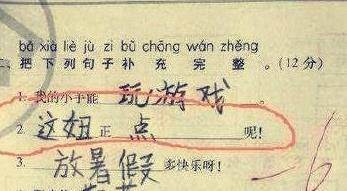 bǎ xià liè jù zi bǔ chōng wán zhěng
二、把下列句子补充完整。(12分)
1. 我的小手能 玩游戏 。
2. 这妞正 点 呢!
3. 放暑假 多快乐呀!